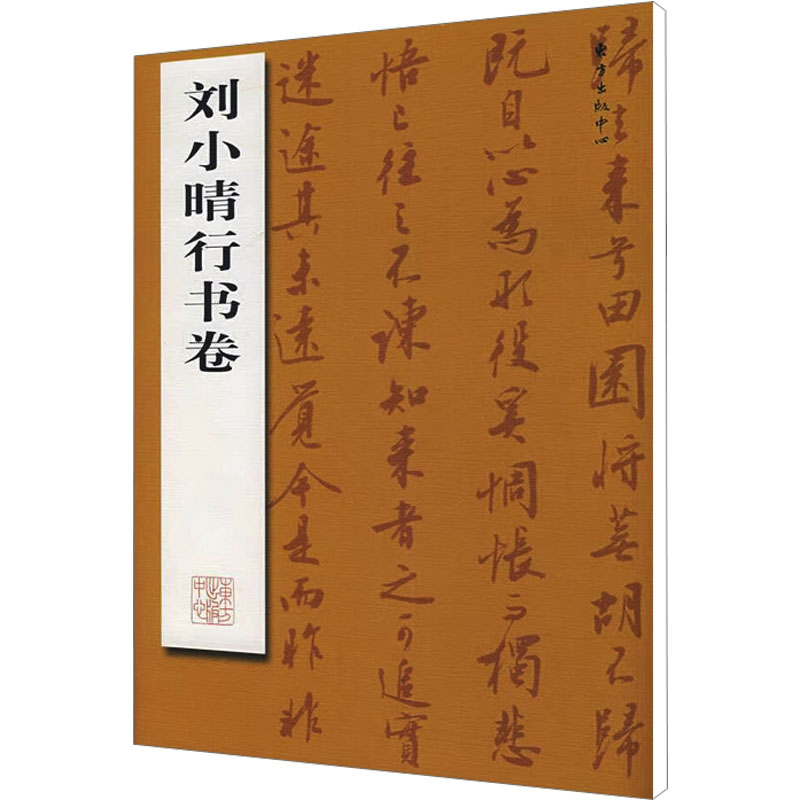 刘小晴行书卷
東方出版中心
歸去来兮田園将蕪胡不歸
既自以心為形役奚惆悵而獨悲
悟已往之不諫知来者之可追實
迷途其未遠覺今是而昨非
東方
出版
中心